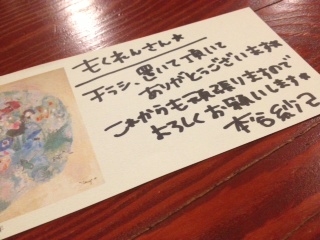 もくれんさん★
チラシ、置いて頂いて
ありがとうございます★
これからも頑張りますので
よろしくお願いします★